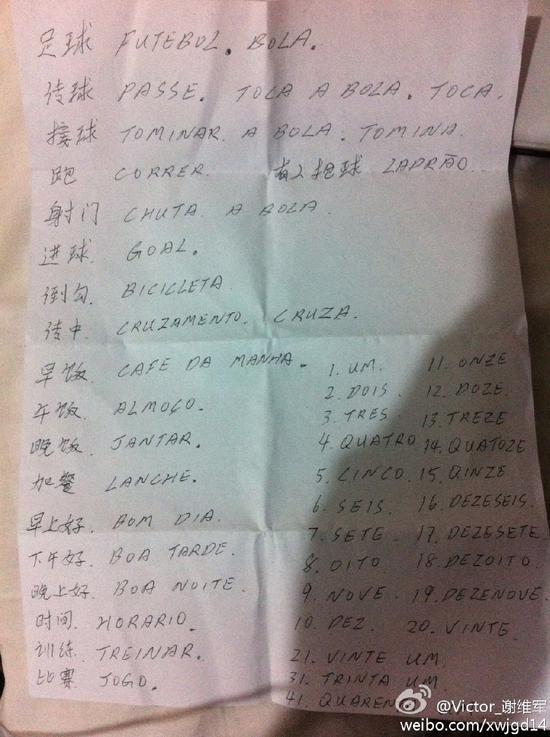 足球 FUTEBOL. BOLA.
传球 PASSE. TOLA A BOLA. TOCA.
接球 TOMINAR. A BOLA. TOMINA.
跑 CORRER. 有人抢球 LAPRÃO.
射门 CHUTA. A BOLA.
进球. GOAL.
倒勾. BICICLETA
传中. CRUZAMENTO. CRUZA.
早饭. CAFE DA MANHA. 1. UM. 11. ONZE
午饭. ALMOÇO. 2. DOIS. 12. DOZE.
晚饭. JANTAR. 3. TRES. 13. TREZE
加餐 LANCHE. 4. QUATRO 14. QUATOZE
早上好. BOM DIA. 5. CINCO. 15. QINZE
下午好. BOA TARDE. 6. SEIS. 16. DEZESEIS
晚上好. BOA NOITE. 7. SETE. 17. DEZESETE
时间. HORARIO. 8. OITO 18. DEZOITO.
训练. TREINAR. 9. NOVE. 19. DEZENOVE.
比赛. JOGO. 10. DEZ. 20. VINTE.
21. VINTE UM.
31. TRINTA UM.
41. QUAREN
@Victor_谢维军
weibo.com/xwjgd14